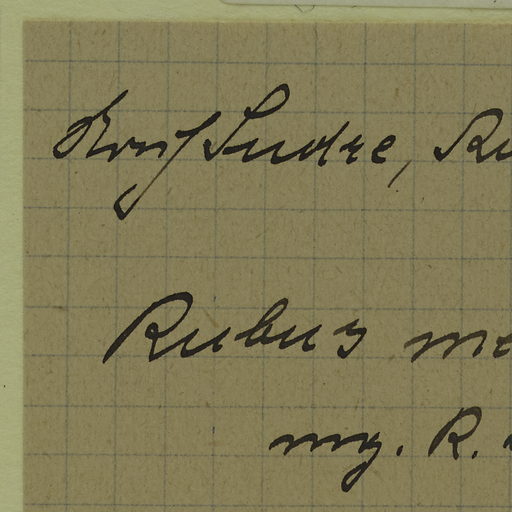 Prof Sudre, Ru
Rubus m
my. R.